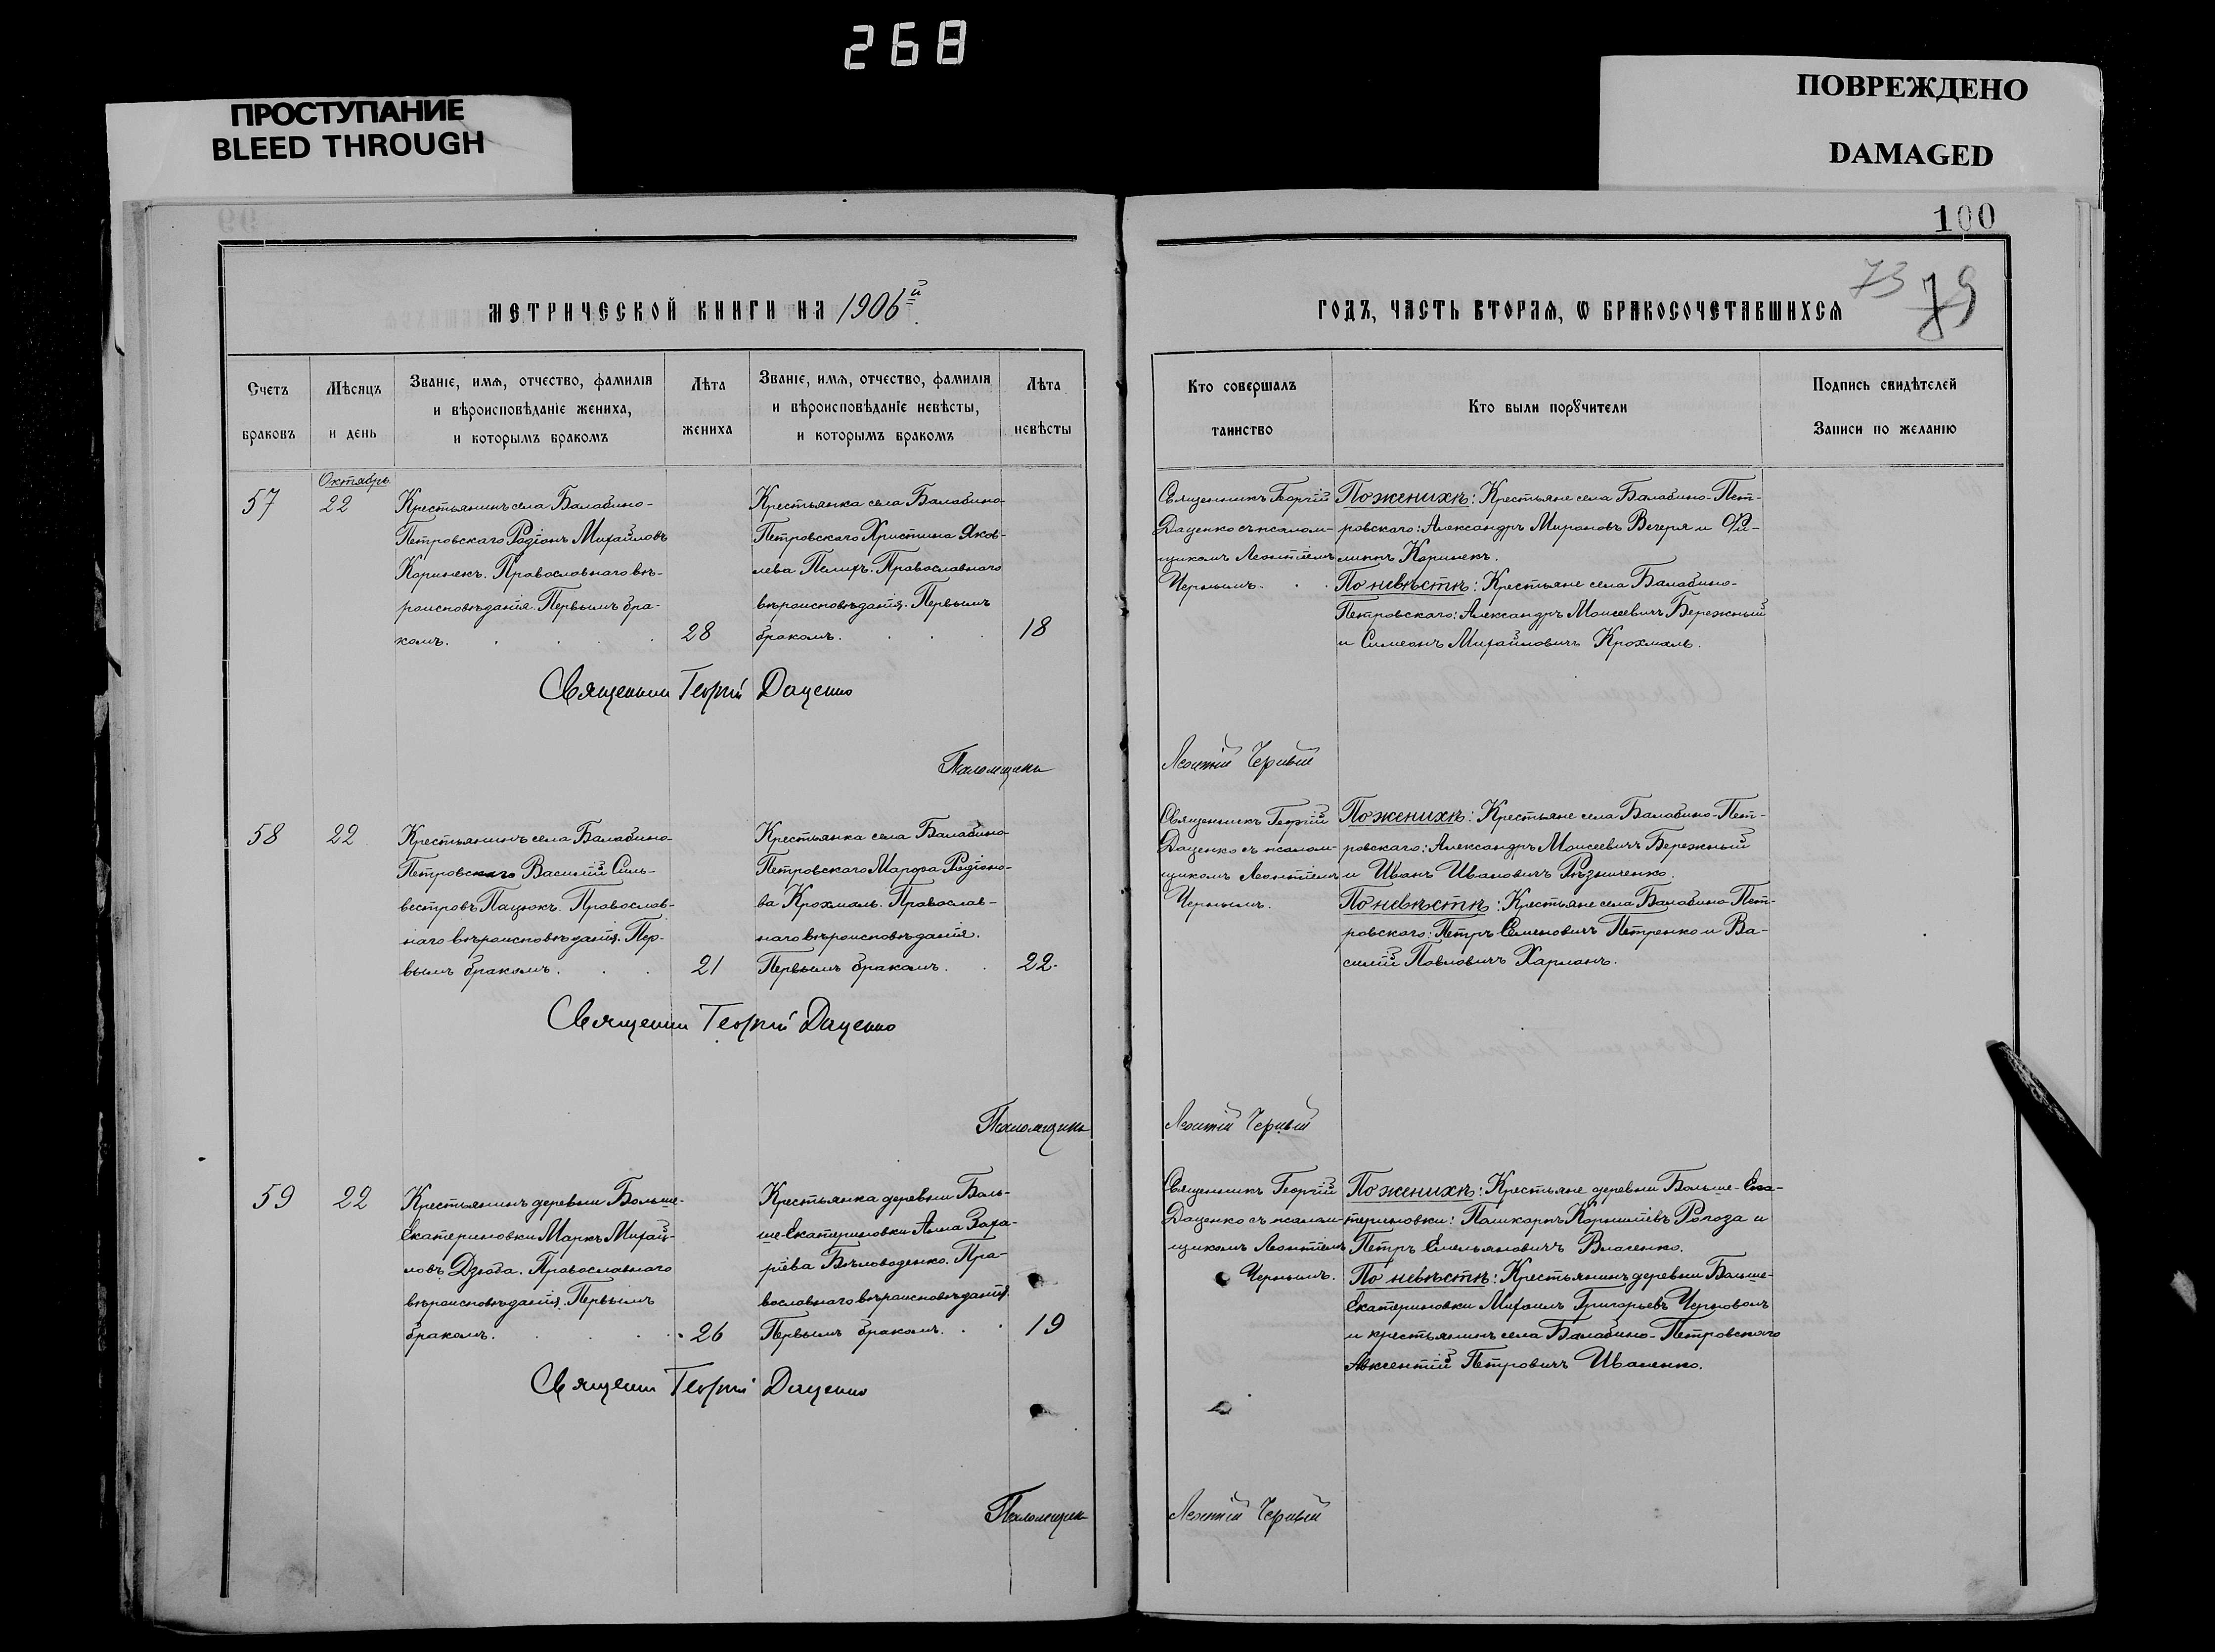 268
ПРОСТУПАНИЕ
BLEED THROUGH
ПОВРЕЖДЕНО
DAMAGED
100
73 79
МЕТРИЧЕСКОЙ КНИГИ НА 1906й
ГОДЪ, ЧАСТЬ ВТОРАЯ, Ѡ БРАКОСОЧЕТАВШИХСЯ
Счетъ
браковъ
Мѣсяцъ
и день
Званіе, имя, отчество, фамилія
и вѣроисповѣданіе жениха,
и которымъ бракомъ
Лѣта
жениха
Званіе, имя, отчество, фамилія
и вѣроисповѣданіе невѣсты,
и которымъ бракомъ
Лѣта
невѣсты
Кто совершалъ
таинство
Кто были порꙋчители
Подпись свидѣтелей
Записи по желанію
57
Октябрь
22
Крестьянинъ села Балабино-
Петровскаго Родіонъ Михайловъ
Коринекъ. Православнаго вѣ-
роисповѣданія. Первымъ бра-
комъ.
28
Крестьянка села Балабино-
Петровскаго Христина Яков-
лева Палиръ. Православнаго
вѣроисповѣданія. Первымъ
бракомъ.
18
Священникъ Георгій
Даценко съ псалом-
щикомъ Леонтіемъ
Чернымъ.
По женихѣ: Крестьяне села Балабино-Пет-
ровскаго: Александръ Мироновъ Вечеря и Фи-
липпъ Коринекъ.
По невѣстѣ: Крестьяне села Балабино-
Петровскаго: Александръ Моисеевичъ Бережный
и Симеонъ Михайловичъ Крохмаль.
Священникъ Георгій Даценко
Псаломщикъ Леонтій Черный
58
22
Крестьянинъ села Балабино-
Петровскаго Василій Силь-
вестровъ Пацюкъ. Православ-
наго вѣроисповѣданія. Пер-
вымъ бракомъ.
21
Крестьянка села Балабино-
Петровскаго Марфа Родіоно-
ва Крохмаль. Православ-
наго вѣроисповѣданія.
Первымъ бракомъ.
22
Священникъ Георгій
Даценко съ псалом-
щикомъ Леонтіемъ
Чернымъ.
По женихѣ: Крестьяне села Балабино-Пет-
ровскаго: Александръ Моисеевичъ Бережный
и Иванъ Ивановичъ Рѣзниченко.
По невѣстѣ: Крестьяне села Балабино-Пет-
ровскаго: Петръ Семеновичъ Петренко и Ва-
силій Павловичъ Харланъ.
Священникъ Георгій Даценко
Псаломщикъ Леонтій Черный
59
22
Крестьянинъ деревни Больше-
Екатериновки Маркъ Михай-
ловъ Дзюба. Православнаго
вѣроисповѣданія. Первымъ
бракомъ.
26
Крестьянка деревни Боль-
ше-Екатериновки Анна Заха-
ріева Бѣловоденко. Пра-
вославнаго вѣроисповѣданія.
Первымъ бракомъ.
19
Священникъ Георгій
Даценко съ псалом-
щикомъ Леонтіемъ
Чернымъ.
По женихѣ: Крестьяне деревни Больше-Ека-
териновки: Корниліевъ Рогоза и
Петръ Емельяновичъ Власенко.
По невѣстѣ: Крестьянинъ деревни Больше-
Екатериновки Михаилъ Григорьевъ Черноволъ
и крестьянинъ села Балабино-Петровскаго
Авксентій Петровичъ Иваненко.
Священникъ Георгій Даценко
Псаломщикъ Леонтій Черный